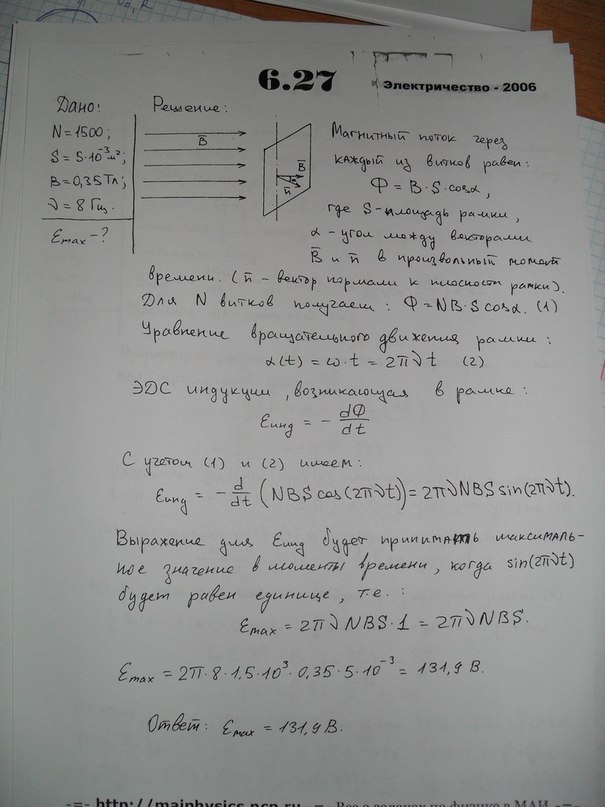 6.27
Электричество - 2006
Дано:
Решение:
N = 1500;
S = 5·10⁻³ м²;
B = 0,35 Тл;
ν = 8 Гц.
Emax - ?
B̅
B̅
n̅
Магнитный поток через
каждый из витков равен:
Φ = B·S·cosα,
где S - площадь рамки,
α - угол между векторами
B̅ и n̅ в произвольный момент
времени. (n̅ - вектор нормали к плоскости рамки).
Для N витков получаем: Φ = NB·S cosα. (1)
Уравнение вращательного движения рамки:
α(t) = ω·t = 2πνt (2)
ЭДС индукции, возникающая в рамке:
Eинд = - dΦ/dt
С учетом (1) и (2) имеем:
Eинд = - d/dt (NBS cos(2πνt)) = 2πνNBS sin(2πνt).
Выражение для Eинд будет принимать максималь-
ное значение в моменты времени, когда sin(2πνt)
будет равен единице, т.е.:
Emax = 2πνNBS·1 = 2πνNBS.
Emax = 2π·8·1,5·10³·0,35·5·10⁻³ = 131,9 В.
Ответ: Emax = 131,9 В.